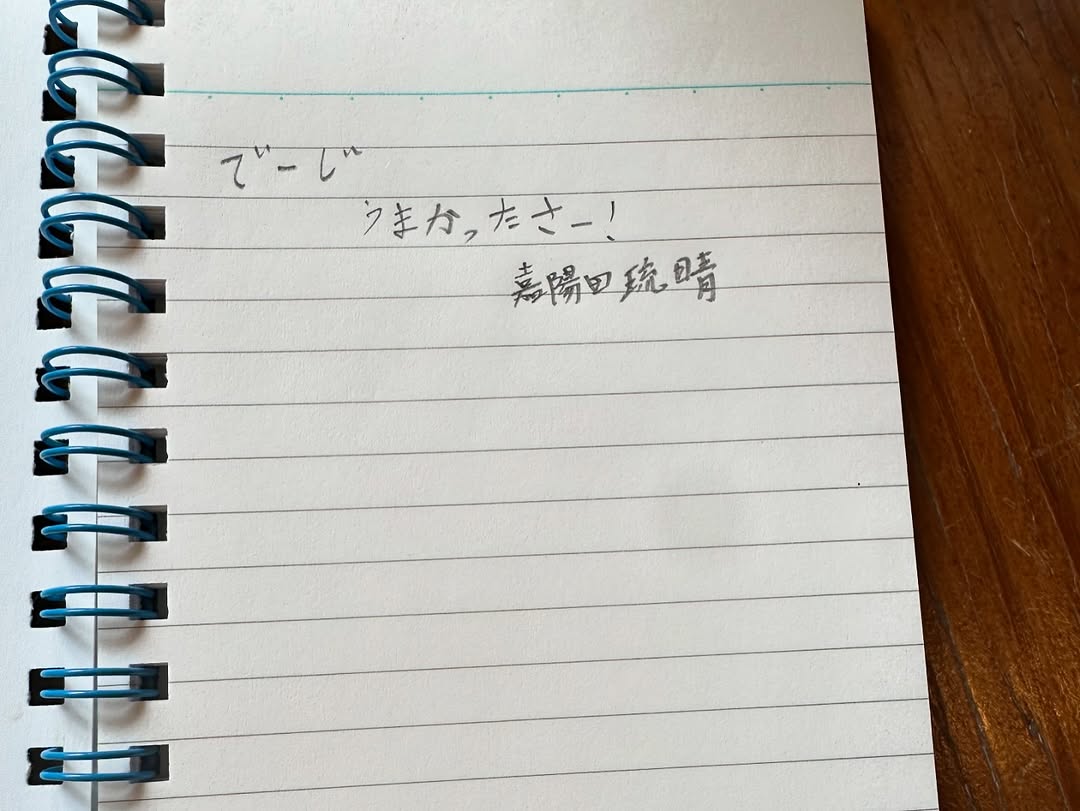 でーじ
うまかったさー!
嘉陽田琉晴